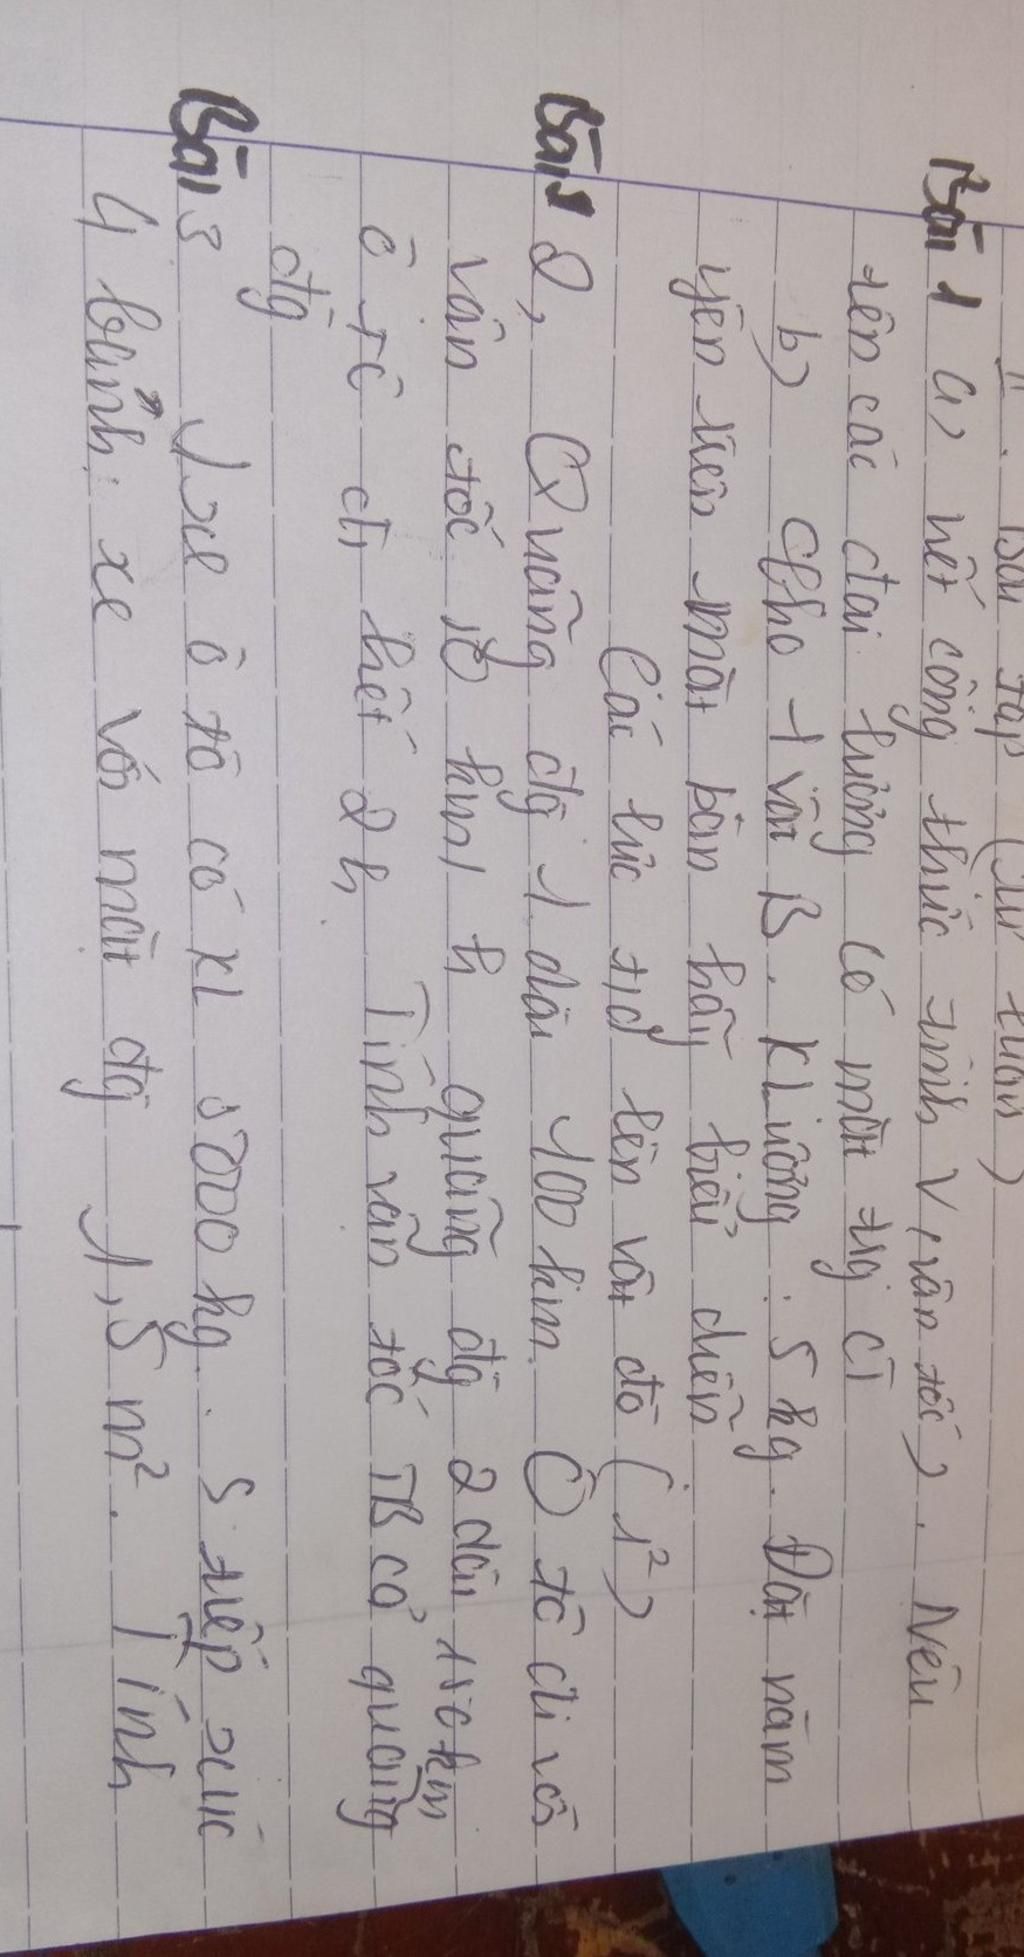 II. Bài tập (tự luận)
Bài 1 a) viết công thức tính V (vận tốc). Nêu
tên các đại lượng có mặt trg ct
b) Cho 1 vật B. KLượng: 5 kg. Đặt nằm
yên trên mặt bàn hãy biểu diễn
Các lực t/d lên vật đó (1²)
Bài 2, Quãng đg 1 dài 100 km. Ô tô đi với
vận tốc km/h quãng đg 2 dài 150 km
ô tô đi hết 2h, Tính vận tốc TB cả quãng
đg
Bài 3 1 xe ô tô có KL 5000 kg. S tiếp xúc
4 bánh xe với mặt đg 1,5 m². Tính